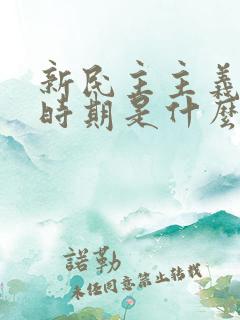 新民主主義
時期是什麼
諾勒
未經同意禁止轉載